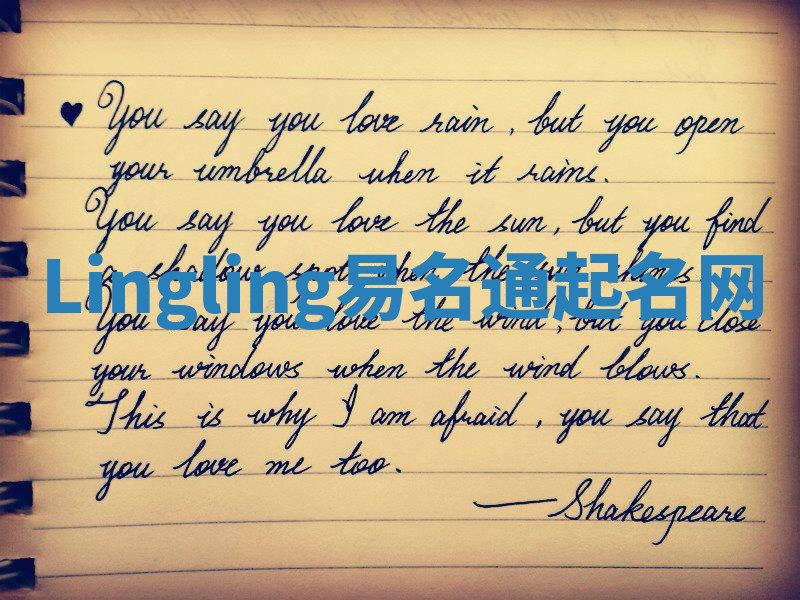 ♥ You say you love rain, but you open
your umbrella when it rains.
You say you love the sun, but you find
a shadow spot when the sun shines
Lingling易名通起名网
You say you love the wind, but you close
your windows when the wind blows.
This is why I am afraid, you say that
you love me too.
—Shakespeare